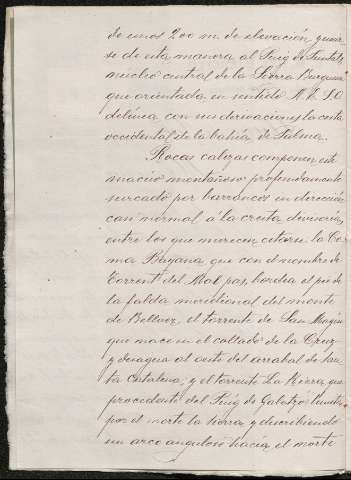 de unos 200 m. de elevación, que une
se de esta manera al Puig de
nucleo central de la Sierra Burguesa
que orientada en sentido N.E. S.O.
delinea con sus derivaciones la costa
occidental de la bahía de Palma.
Rocas calizas componen este
macizo montañoso profundamente
surcado por barrancos en dirección
casi normal á la cresta divisoria,
entre los que merecen citarse la Co-
ma que con el nombre de
Torrent del Mal pas, bordea el pie de
la falda meridional del monte
de Bellver, el torrente de San Magin
que nace en el collado de la Creu
y desagua al oeste del arrabal de San-
ta Catalina, y el torrente La Riera, que
procedente del Puig de Galatzó limita
por el norte la sierra, y describiendo
un arco anguloso hacia el norte